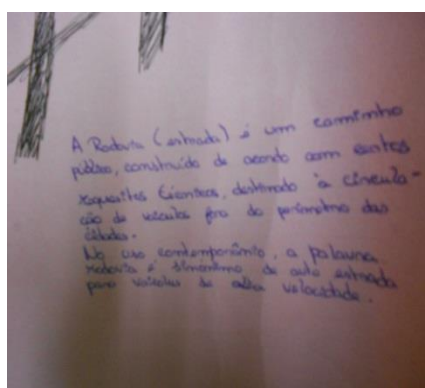 A Rodovia (estrada) é um caminho
público, construído de acordo com certos
requisitos técnicos, destinado à circula-
ção de veículos fora do perímetro das
cidades.
No uso contemporânio, a palavra
rodovia é sinonimo de auto estrada
para veículos de alta velocidade.